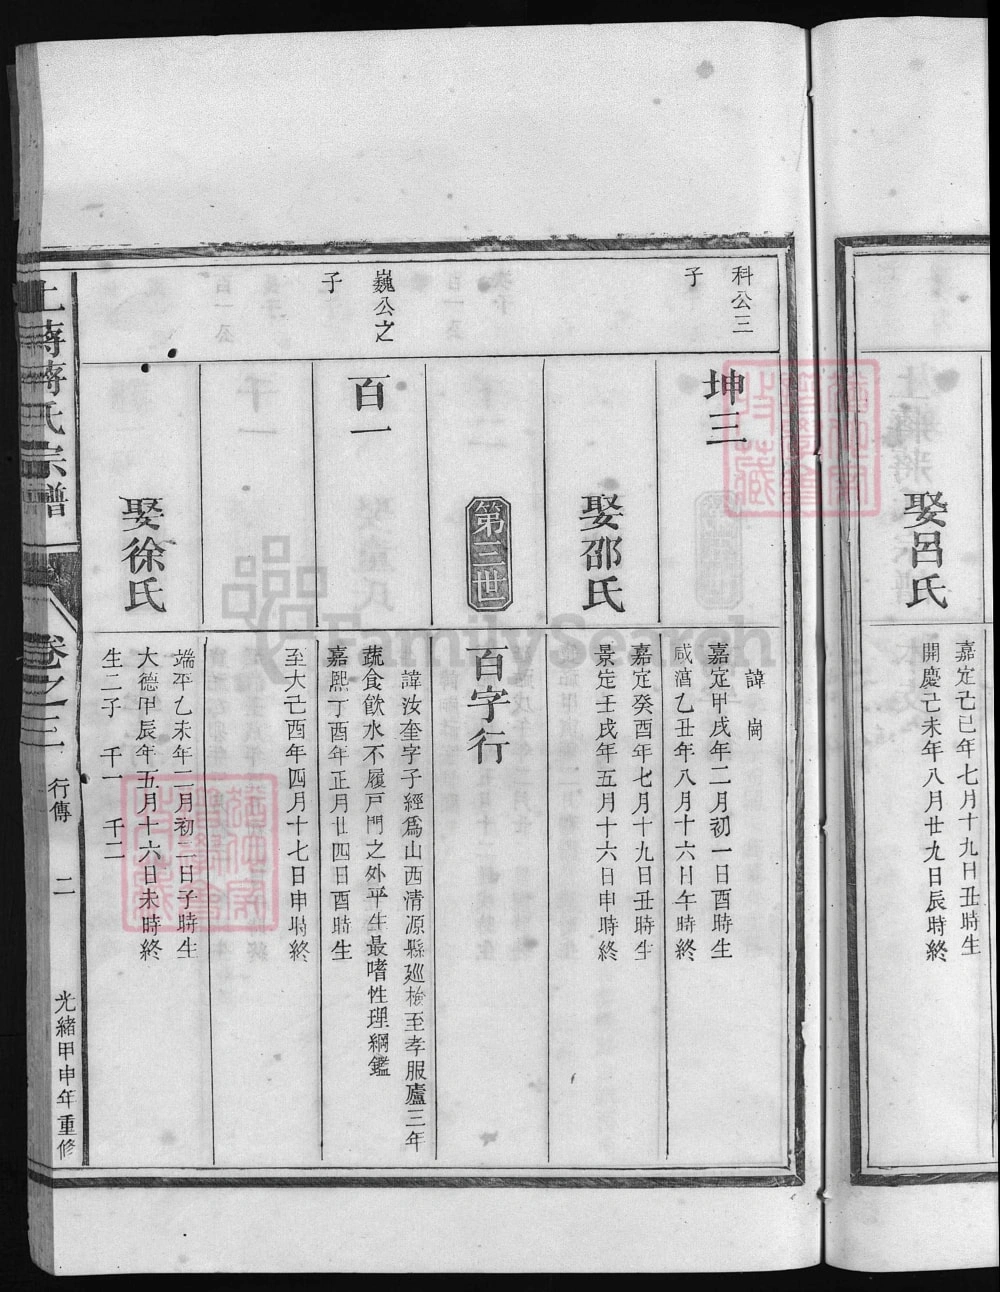 娶呂氏
嘉定己巳年七月十九日丑時生
開慶己未年八月廿九日辰時終
科公三
子
坤三
諱崗
嘉定甲戌年二月初一日酉時生
咸淳乙丑年八月十六日午時終
娶邵氏
嘉定癸酉年七月十九日丑時生
景定壬戌年五月十六日申時終
第三世
百字行
巍公之
子
百一
諱汝奎字子經爲山西清源縣廵檢至孝服廬三年
蔬食飲水不履戸門之外平生最嗜性理綱鑑
嘉熙丁酉年正月廿四日酉時生
至大己酉年四月十七日申時終
娶徐氏
端平乙未年二月初二日子時生
大德甲辰年五月十六日未時終
生二子 千一 千二
上蔣蔣氏宗譜
卷之三 行傳 二 光緒甲申年重修
FamilySearch